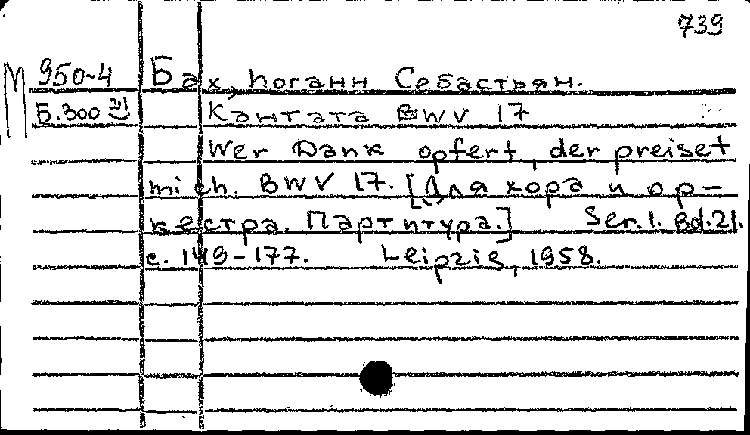 739
М 950-4 Бах, Иоганн Себастьян.
Б.300 Кантата BWV 17
Wer Dank opfert, der preiset
mich. BWV 17. [Для хора и ор-
кестра. Партитура.] Ser.1. Bd.21.
с. 149-177. Leipzig, 1958.